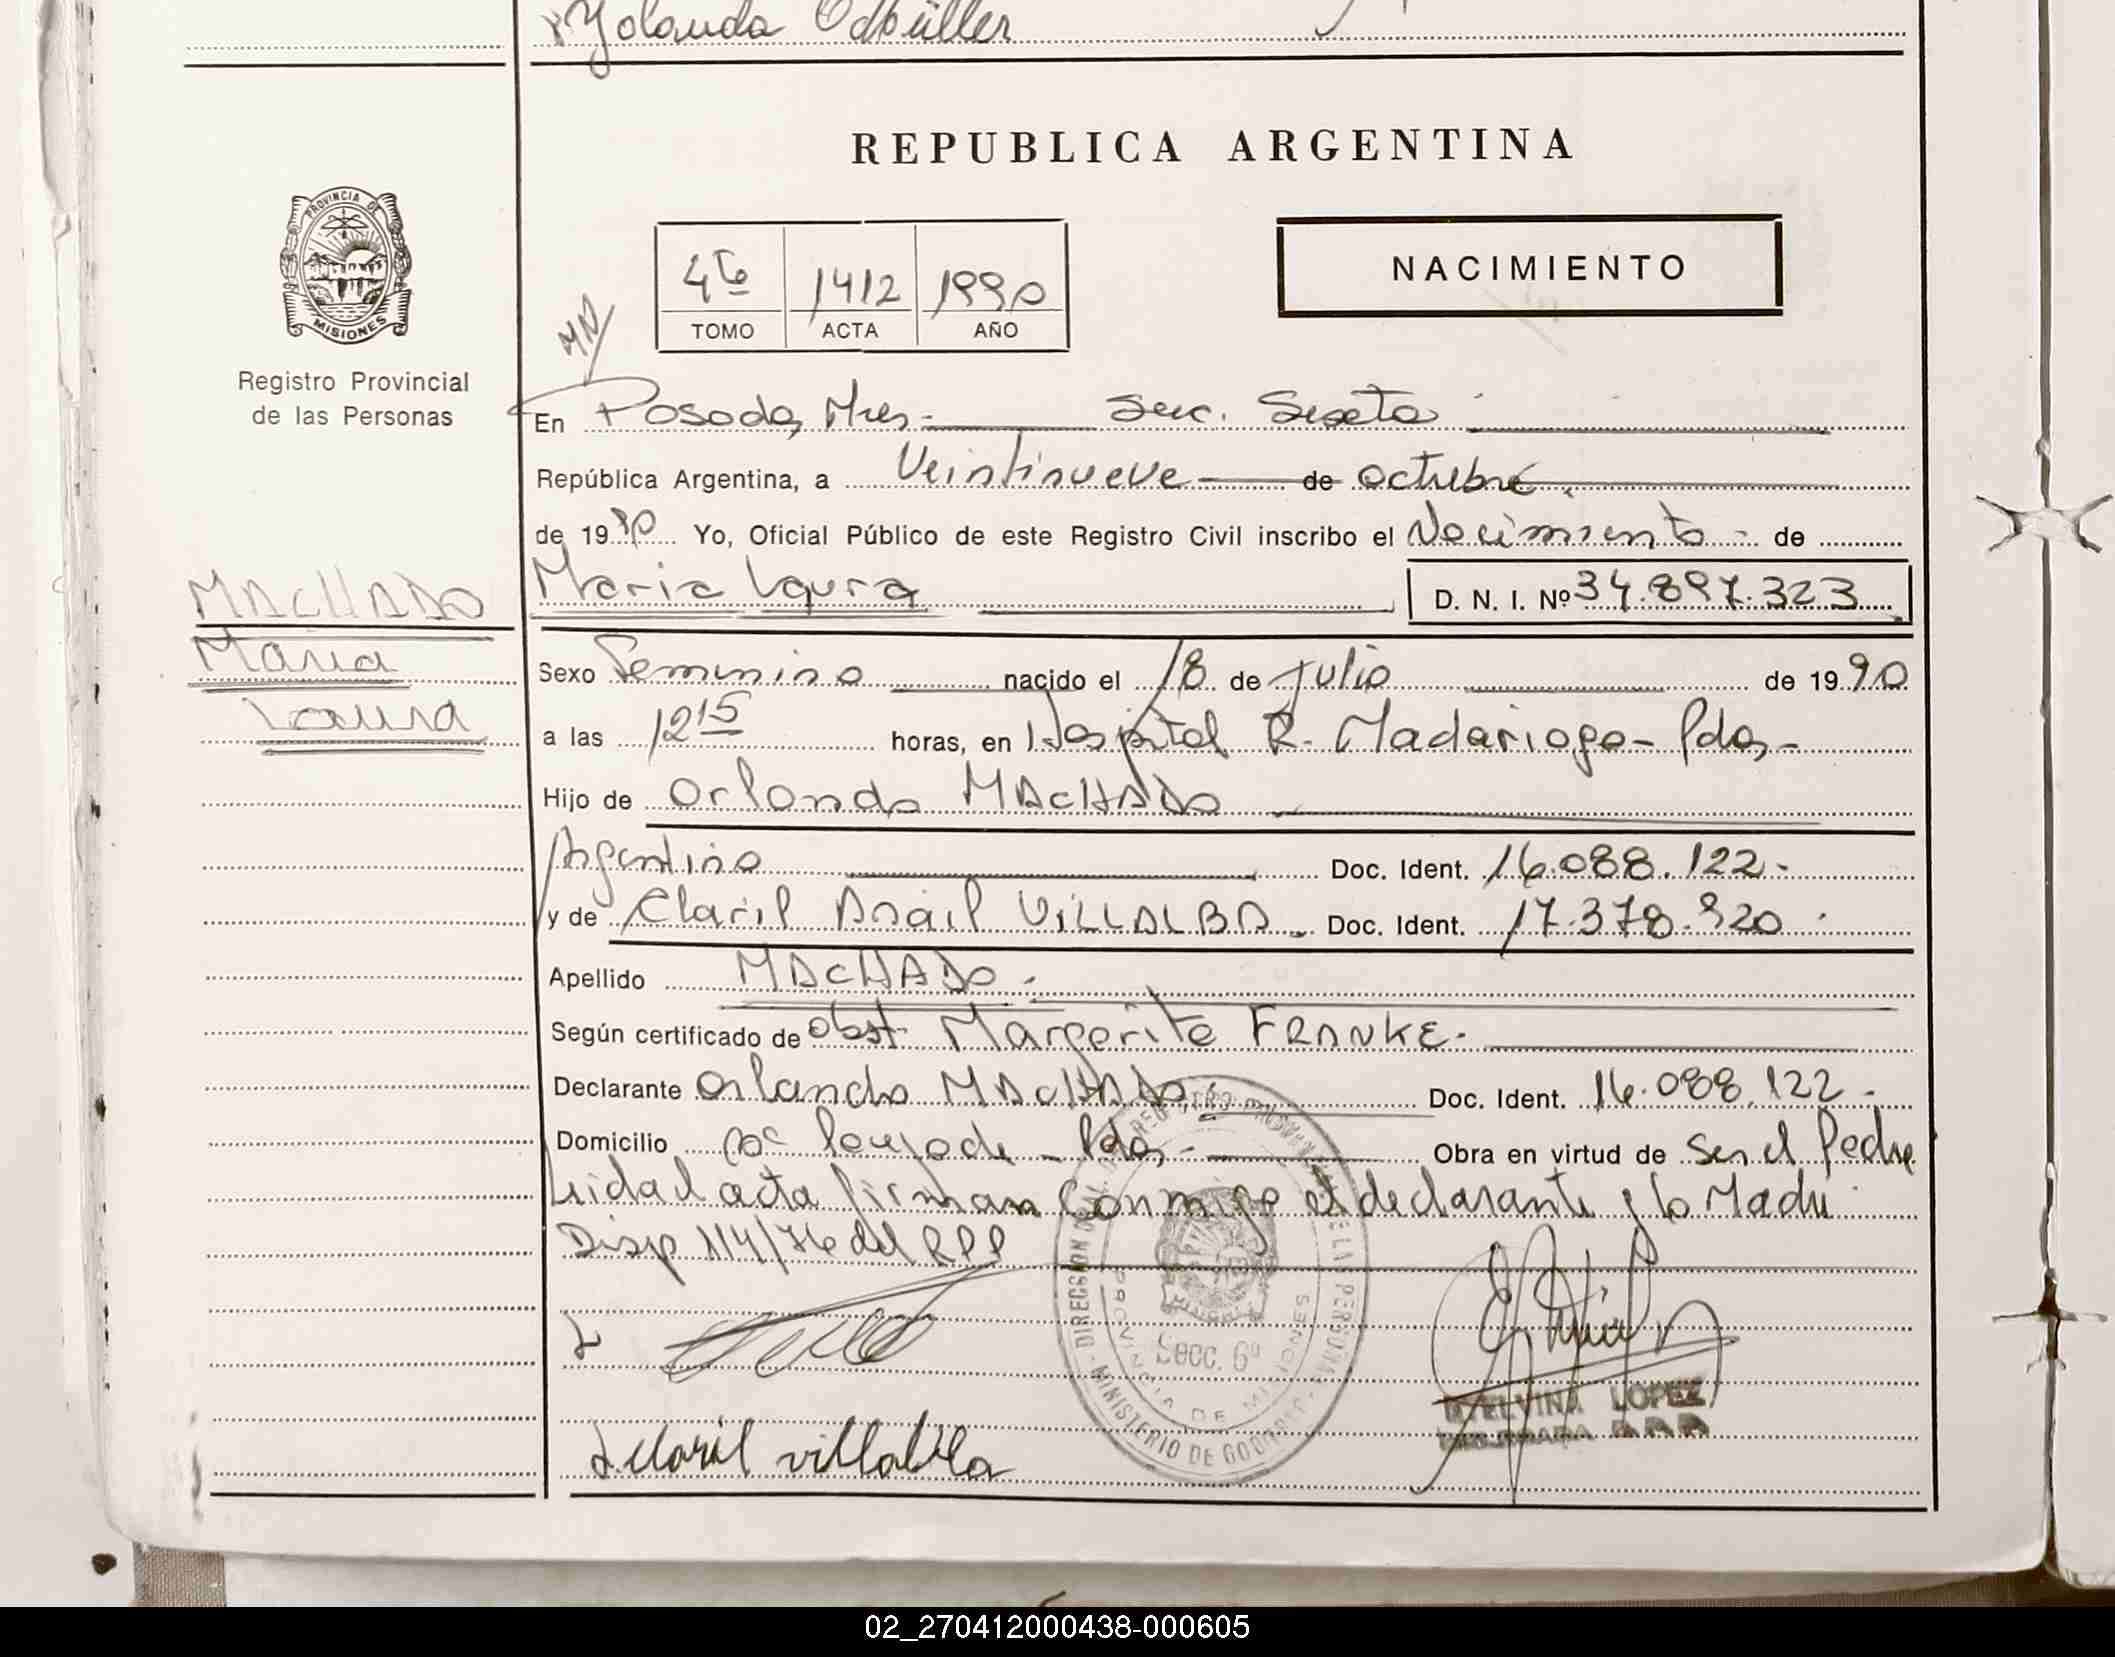 Yolanda Odbüller
REPUBLICA ARGENTINA
PROVINCIA DE
MISIONES
Registro Provincial
de las Personas
4to 1412 1990
TOMO ACTA AÑO
NACIMIENTO
En Posadas, Mnes.- Secc. Sexta
República Argentina, a Veintinueve de octubre.
de 1990 Yo, Oficial Público de este Registro Civil inscribo el Nacimiento - de
MACHADO
Maria
Laura
Maria Laura D. N. I. Nº 34.897.323
Sexo Femenino nacido el 18 de Julio de 1990
a las 12 15 horas, en Hospital R. Madariaga - Pdas -
Hijo de Orlando MACHADO
Argentino Doc. Ident. 16.088.122.-
y de Claril Anail VILLALBA. Doc. Ident. 17.378.920.
Apellido MACHADO.
Según certificado de obst. Margarita FRANKE.-
Declarante Orlando MACHADO. Doc. Ident. 16.088.122.-
Domicilio Pdas,- Obra en virtud de ser el Padre
Leida el acta firman conmigo el declarante y la Madre.
Disp 114/76 del RPP
DIRECCION GRAL. DE REGISTRO PROVINCIAL DE LA PERSONA - MINISTERIO DE GOBIERNO
PROVINCIA DE MISIONES
Secc. 6º
Claril villalba
ETELVINA LOPEZ
02_270412000438-000605